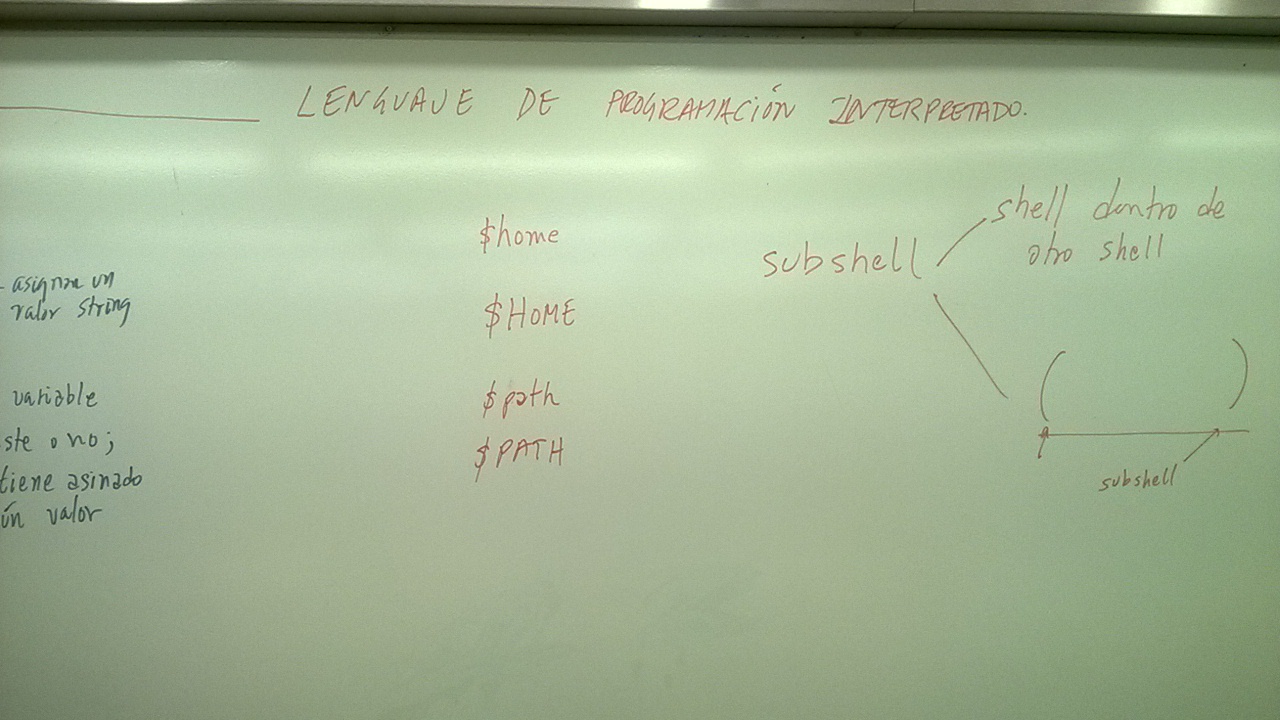 LENGUAJE DE PROGRAMACIÓN INTERPRETADO.
- asignan un
valor string
variable
ste o no;
tiene asinado
ún valor
$home
$HOME
$path
$PATH
subshell
shell dentro de
otro shell
( )
subshell